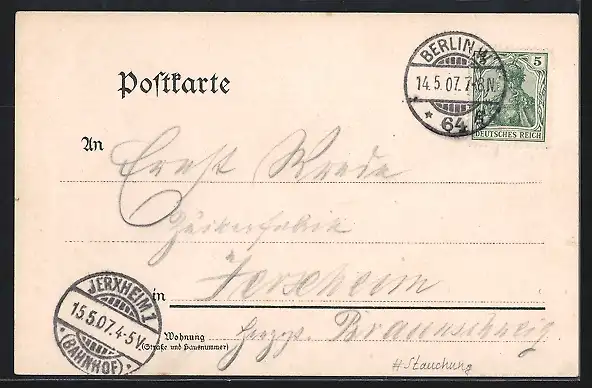 Postkarte
BERLIN W
14.5.07.7-8N.
* 64
5
DEUTSCHES REICH
An
Ernst Wrede
Zuckerfabrik
in Jerxheim
Wohnung
(Straße und Hausnummer)
Herzogt. Braunschweig
JERXHEIM 1
15.5.07.4-5V.
* (BAHNHOF) *
#Stauchung